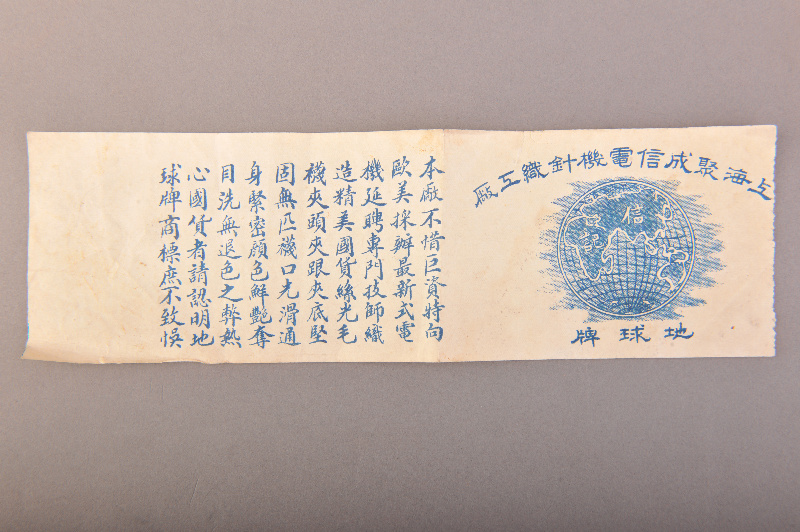 上海聚成信電機針織工廠
信
地球牌
本廠不惜巨資特向
歐美採辦最新式電
機延聘專門技師織
造精美國貨絲光毛
襪夾頭夾跟夾底堅
固無匹襪口光滑通
身緊密顏色鮮艷奪
目洗無退色之弊熱
心國貨者請認明地
球牌商標庶不致悞